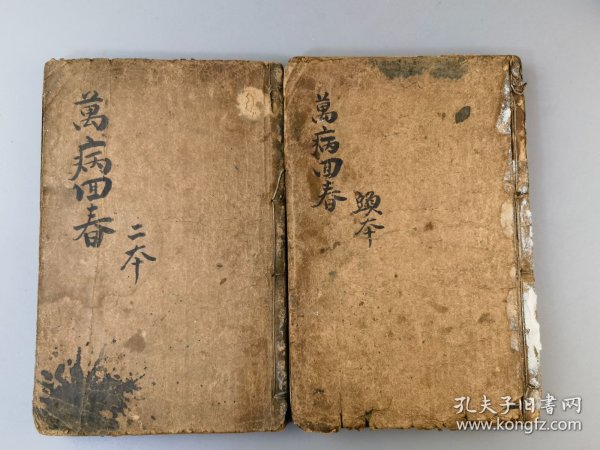 萬病回春
頭本
萬病回春
二本
孔夫子旧书网
www.kongfz.com